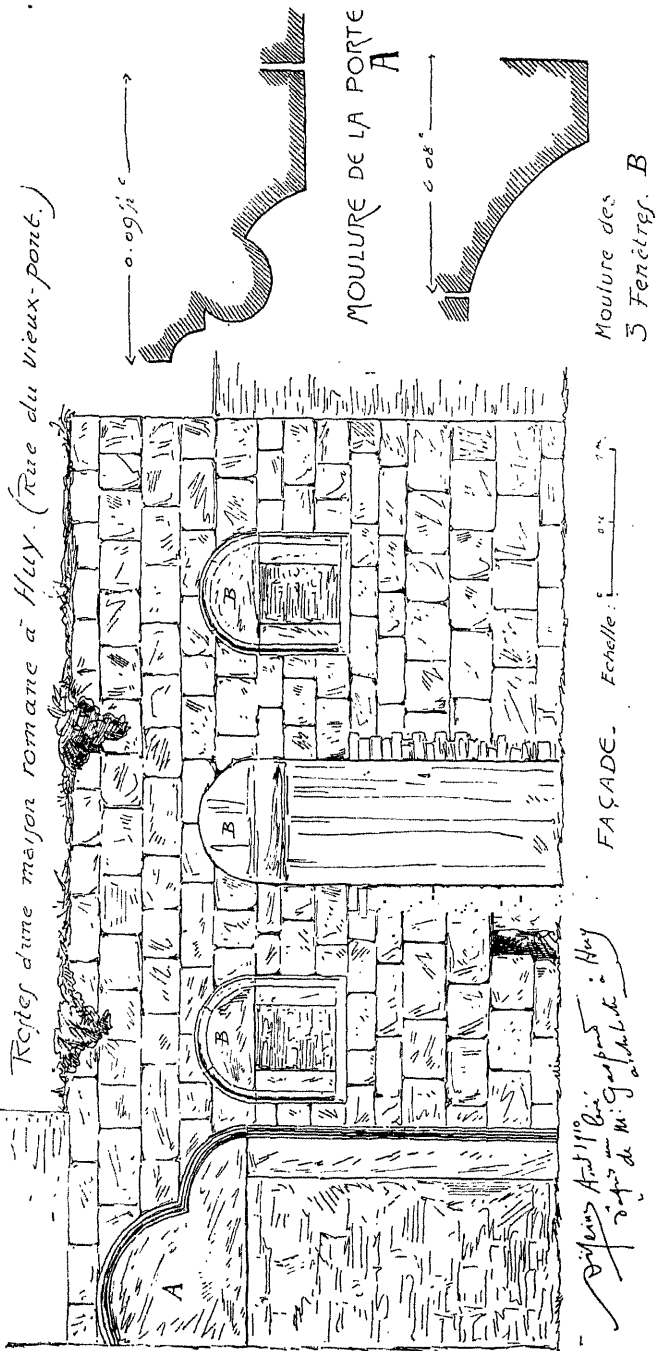 Restes d'une maison romane à Huy. (Rue du Vieux-pont.)
A
B
B
B
MOULURE DE LA PORTE
A
0.08ᶜ
Moulure des
3 Fenêtres. B
FAÇADE_ Echelle:
Août 1910
d'après un levé
de Mr Gaspard
architecte à Huy